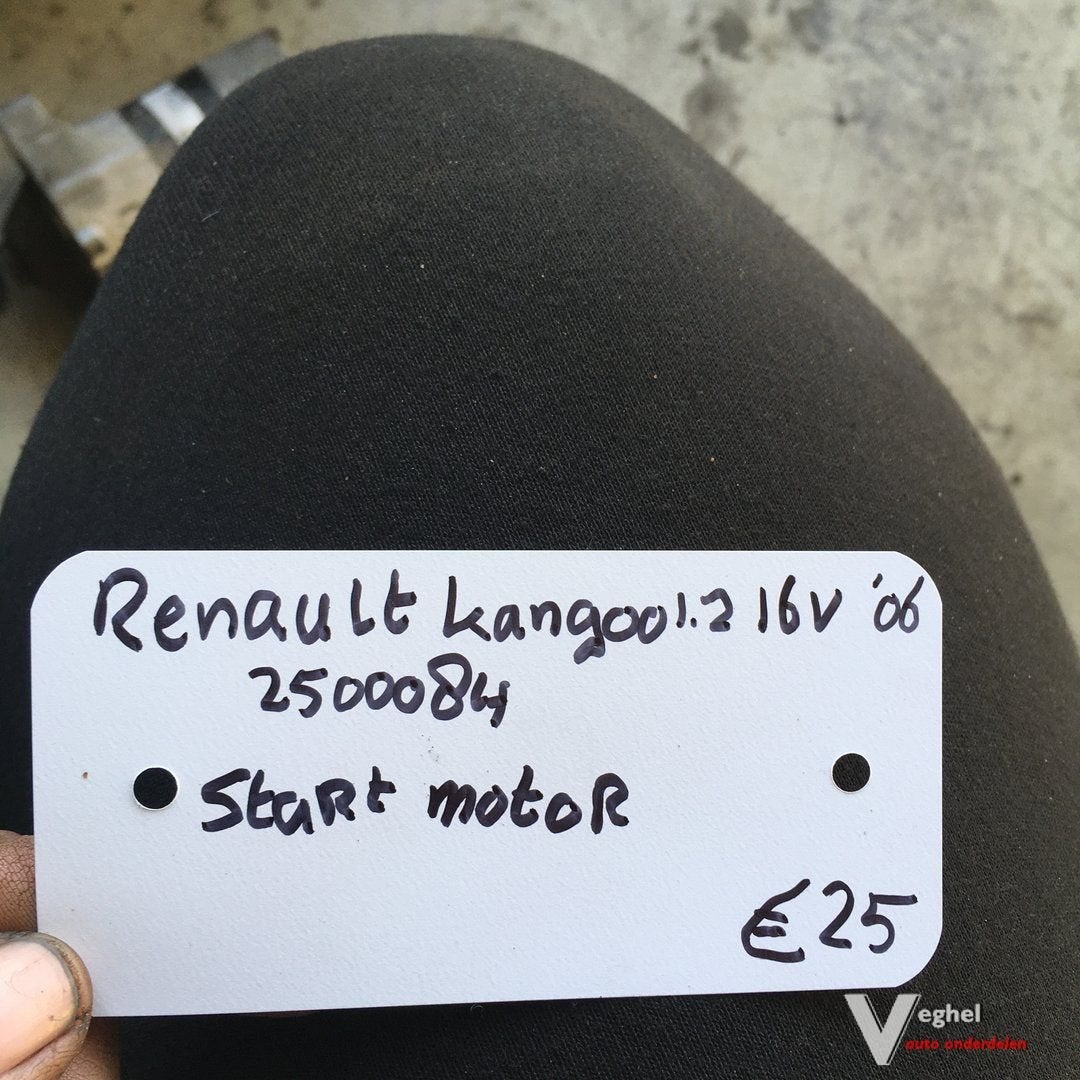 Renault kangoo 1.2 16V '06
2500084
Start motoR
€25
Veghel
auto onderdelen